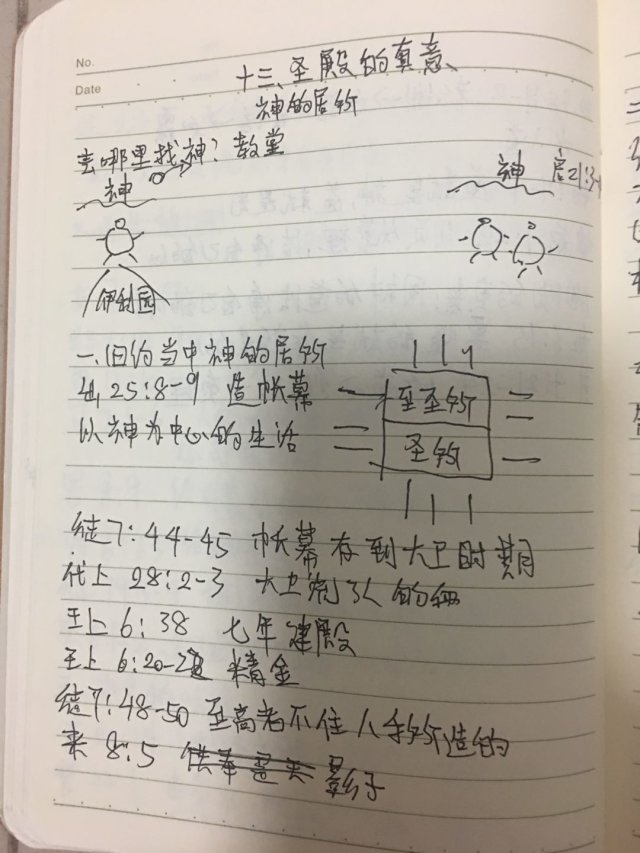 No.
Date
十三、圣殿的真意、
神的居所
去哪里找神? 教堂
神
神 启21:3
伊利园
一、旧约当中神的居所
出25:8-9 造帐幕
至至所
以神为中心的生活
圣所
徒7:44-45 帐幕存到大卫时期
代上 28:2-3 大卫流了人的血
王上 6:38 七年建殿
王上 6:20-22 精金
徒7:48-50 至高者不住人手所造的
来 8:5 影子